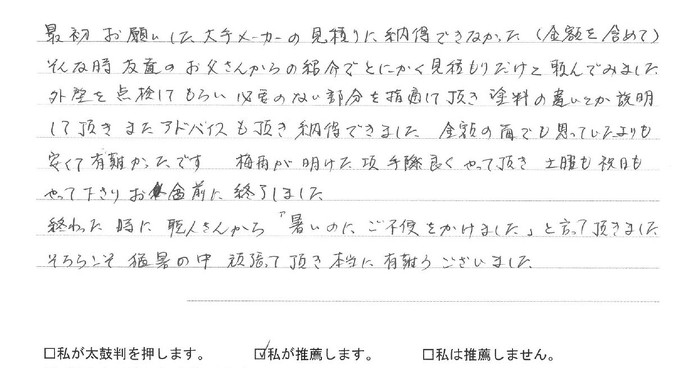 最初 お願いした大手メーカーの見積りに納得できなかった（金額を含めて）
そんな時 友達のお父さんからの紹介でとにかく見積もりだけと頼んでみました
外壁を点検してもらい 必要のない部分を指摘して頂き 塗料の違いとか説明
して頂き またアドバイスも頂き 納得できました 金額の面でも思っていたよりも
安くて有難かったです 梅雨が明けた頃 手際良くやって頂き 土曜も祝日も
やって下さり お盆前に終了しました
終わった時に 職人さんから「暑いのに ご不便をかけました」と言って頂きました
そちらこそ 猛暑の中 頑張って頂き 本当に有難うございました
□私が太鼓判を押します。 ☑私が推薦します。 □私は推薦しません。